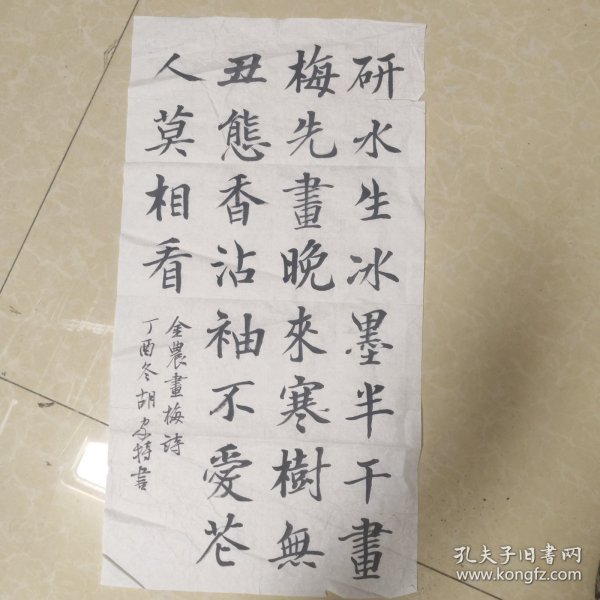 研水生冰墨半干畫
梅先畫晚來寒樹無
丑態香沾袖不愛芲
人莫相看
金農畫梅詩
丁酉冬胡家特書
孔夫子旧書网
www.kongfz.com